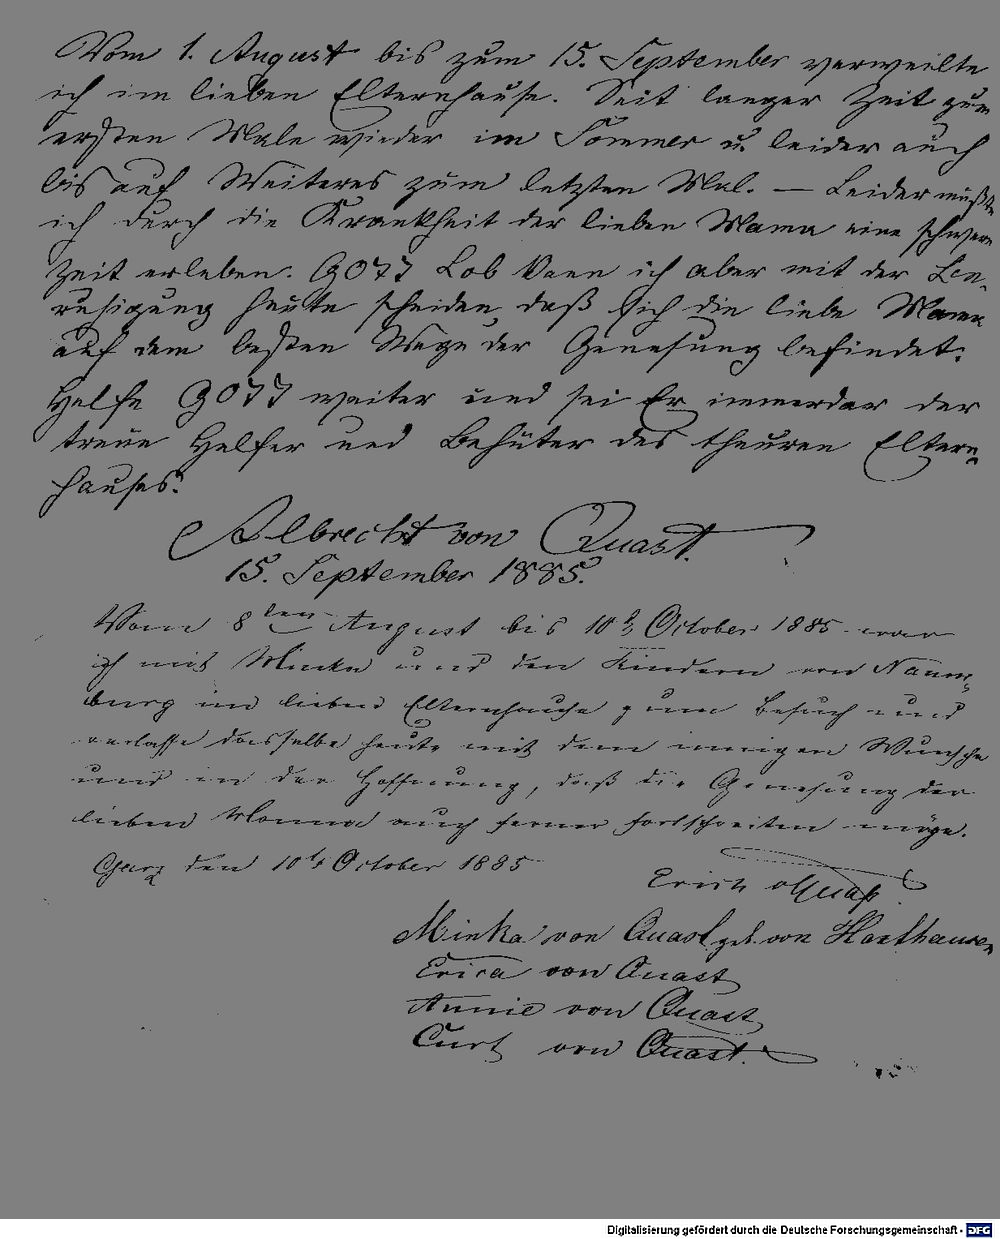 Vom 1. August bis zum 15. September verweilte
ich im lieben Elternhause. Seit langer Zeit zum
ersten Male wieder im Sommer u. leider auch
bis auf Weiteres zum letzten Mal. — Leider mußte
ich durch die Krankheit der lieben Mama eine schwere
Zeit erleben. GOTT Lob kann ich aber mit der Be-
ruhigung heute scheiden, daß sich die liebe Mama
auf dem besten Wege der Genesung befindet.
Helfe GOTT weiter und sei Er immerdar der
treue Helfer und Behüter des theuren Eltern-
hauses.
Albrecht von Quast.
15. September 1885.
Vom 8ten August bis 10t October 1885 war
ich mit Minka und den Kindern von Naum-
burg im lieben Elternhause zum Besuch und
verlasse dasselbe heute mit dem innigen Wunsche
und in der Hoffnung, daß die Genesung der
lieben Mama auch ferner fortschreiten möge.
Garz den 10t October 1885
Erich vQuast
Minka von Quast geb. von Haxthausen
Erica von Quast
Annie von Quast
Curt von Quast.
Digitalisierung gefördert durch die Deutsche Forschungsgemeinschaft - DFG